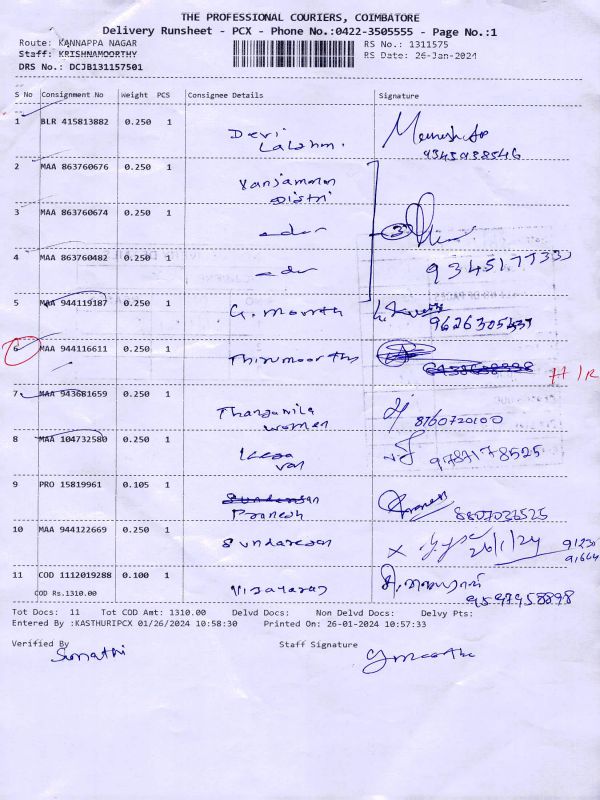 THE PROFESSIONAL COURIERS, COIMBATORE
Delivery Runsheet - PCX - Phone No.:0422-3505555 - Page No.:1
Route: KANNAPPA NAGAR
RS No.: 1311575
Staff: KRISHNAMOORTHY
RS Date: 26-Jan-2024
DRS No.: DCJB131157501
S No Consignment No Weight PCS Consignee Details Signature
1 BLR 415813882 0.250 1 Devi
Lakshmi.
2 MAA 863760676 0.250 1 Vanjamman
3 MAA 863760674 0.250 1 3
4 MAA 863760482 0.250 1
5 MAA 944119187 0.250 1 G. Moorth
6 MAA 944116611 0.250 1 Thirumoorthy
7 MAA 943681659 0.250 1 Thangamila
women 8760720100
8 MAA 104732580 0.250 1 Kesa
van 9787178525
9 PRO 15819961 0.105 1
Pranesh
10 MAA 944122669 0.250 1 Sundaresan 26/1/24
11 COD 1112019288 0.100 1
COD Rs.1310.00 Vijayaraj 9597958898
Tot Docs: 11 Tot COD Amt: 1310.00 Delvd Docs: Non Delvd Docs: Delvy Pts:
Entered By :KASTHURIPCX 01/26/2024 10:58:30 Printed On: 26-01-2024 10:57:33
Verified By Staff Signature
Sumathi